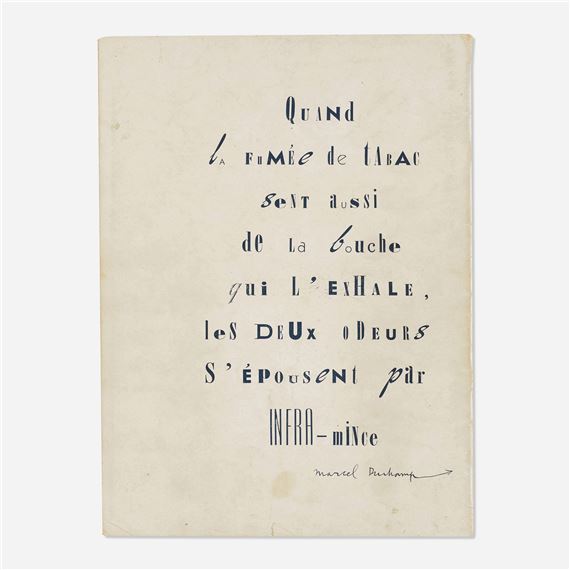 QUAND
LA FUMÉE de TABAC
SENT AUSSI
de LA bouche
qui L'EXHALE,
les DEUX ODEURS
S'ÉPOUSENT par
INFRA-miNce
Marcel Duchamp